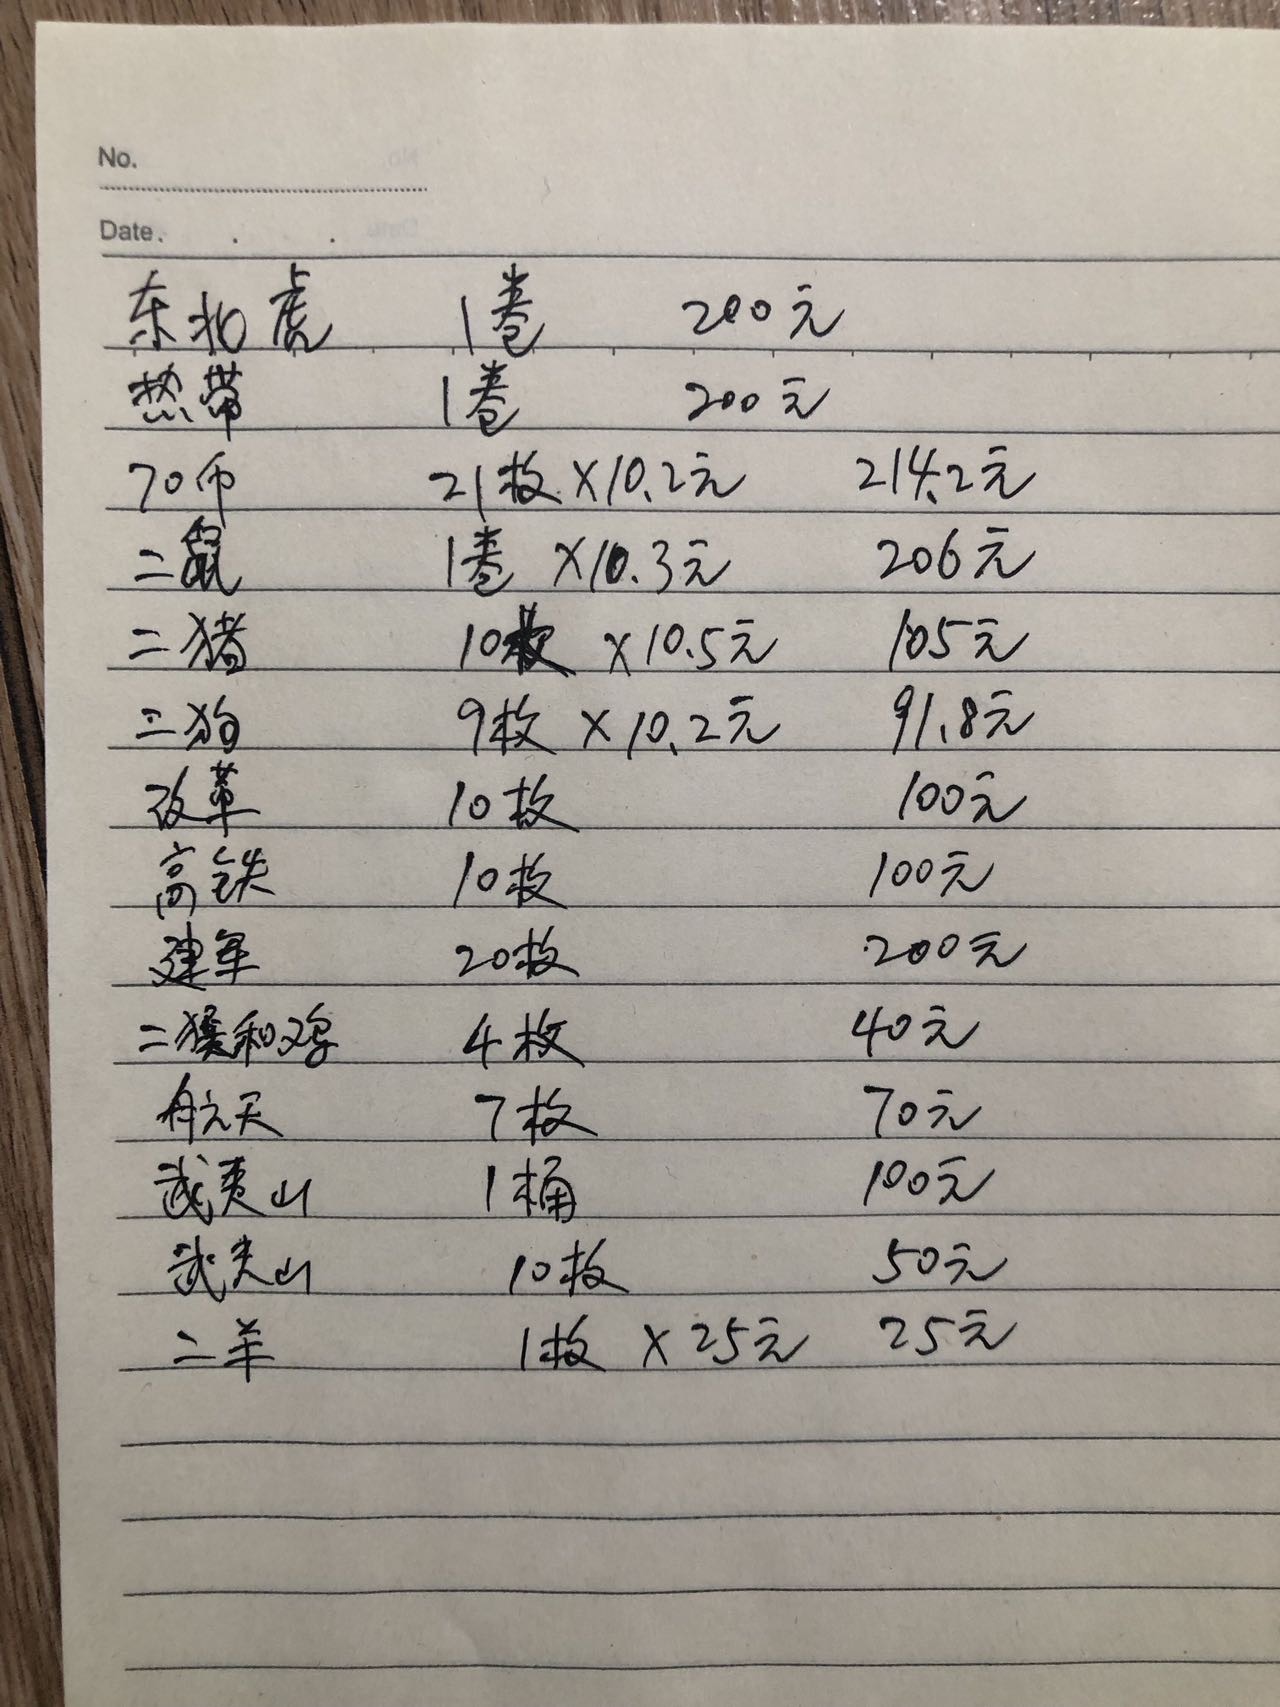 No.
Date.
东北虎 1卷 200元
热带 1卷 200元
70币 21枚×10.2元 214.2元
二鼠 1卷 ×10.3元 206元
二猪 10枚 ×10.5元 105元
二狗 9枚 ×10.2元 91.8元
改革 10枚 100元
高铁 10枚 100元
建军 20枚 200元
二猴和鸡 4枚 40元
航天 7枚 70元
武夷山 1桶 100元
武夷山 10枚 50元
二羊 1枚 ×25元 25元